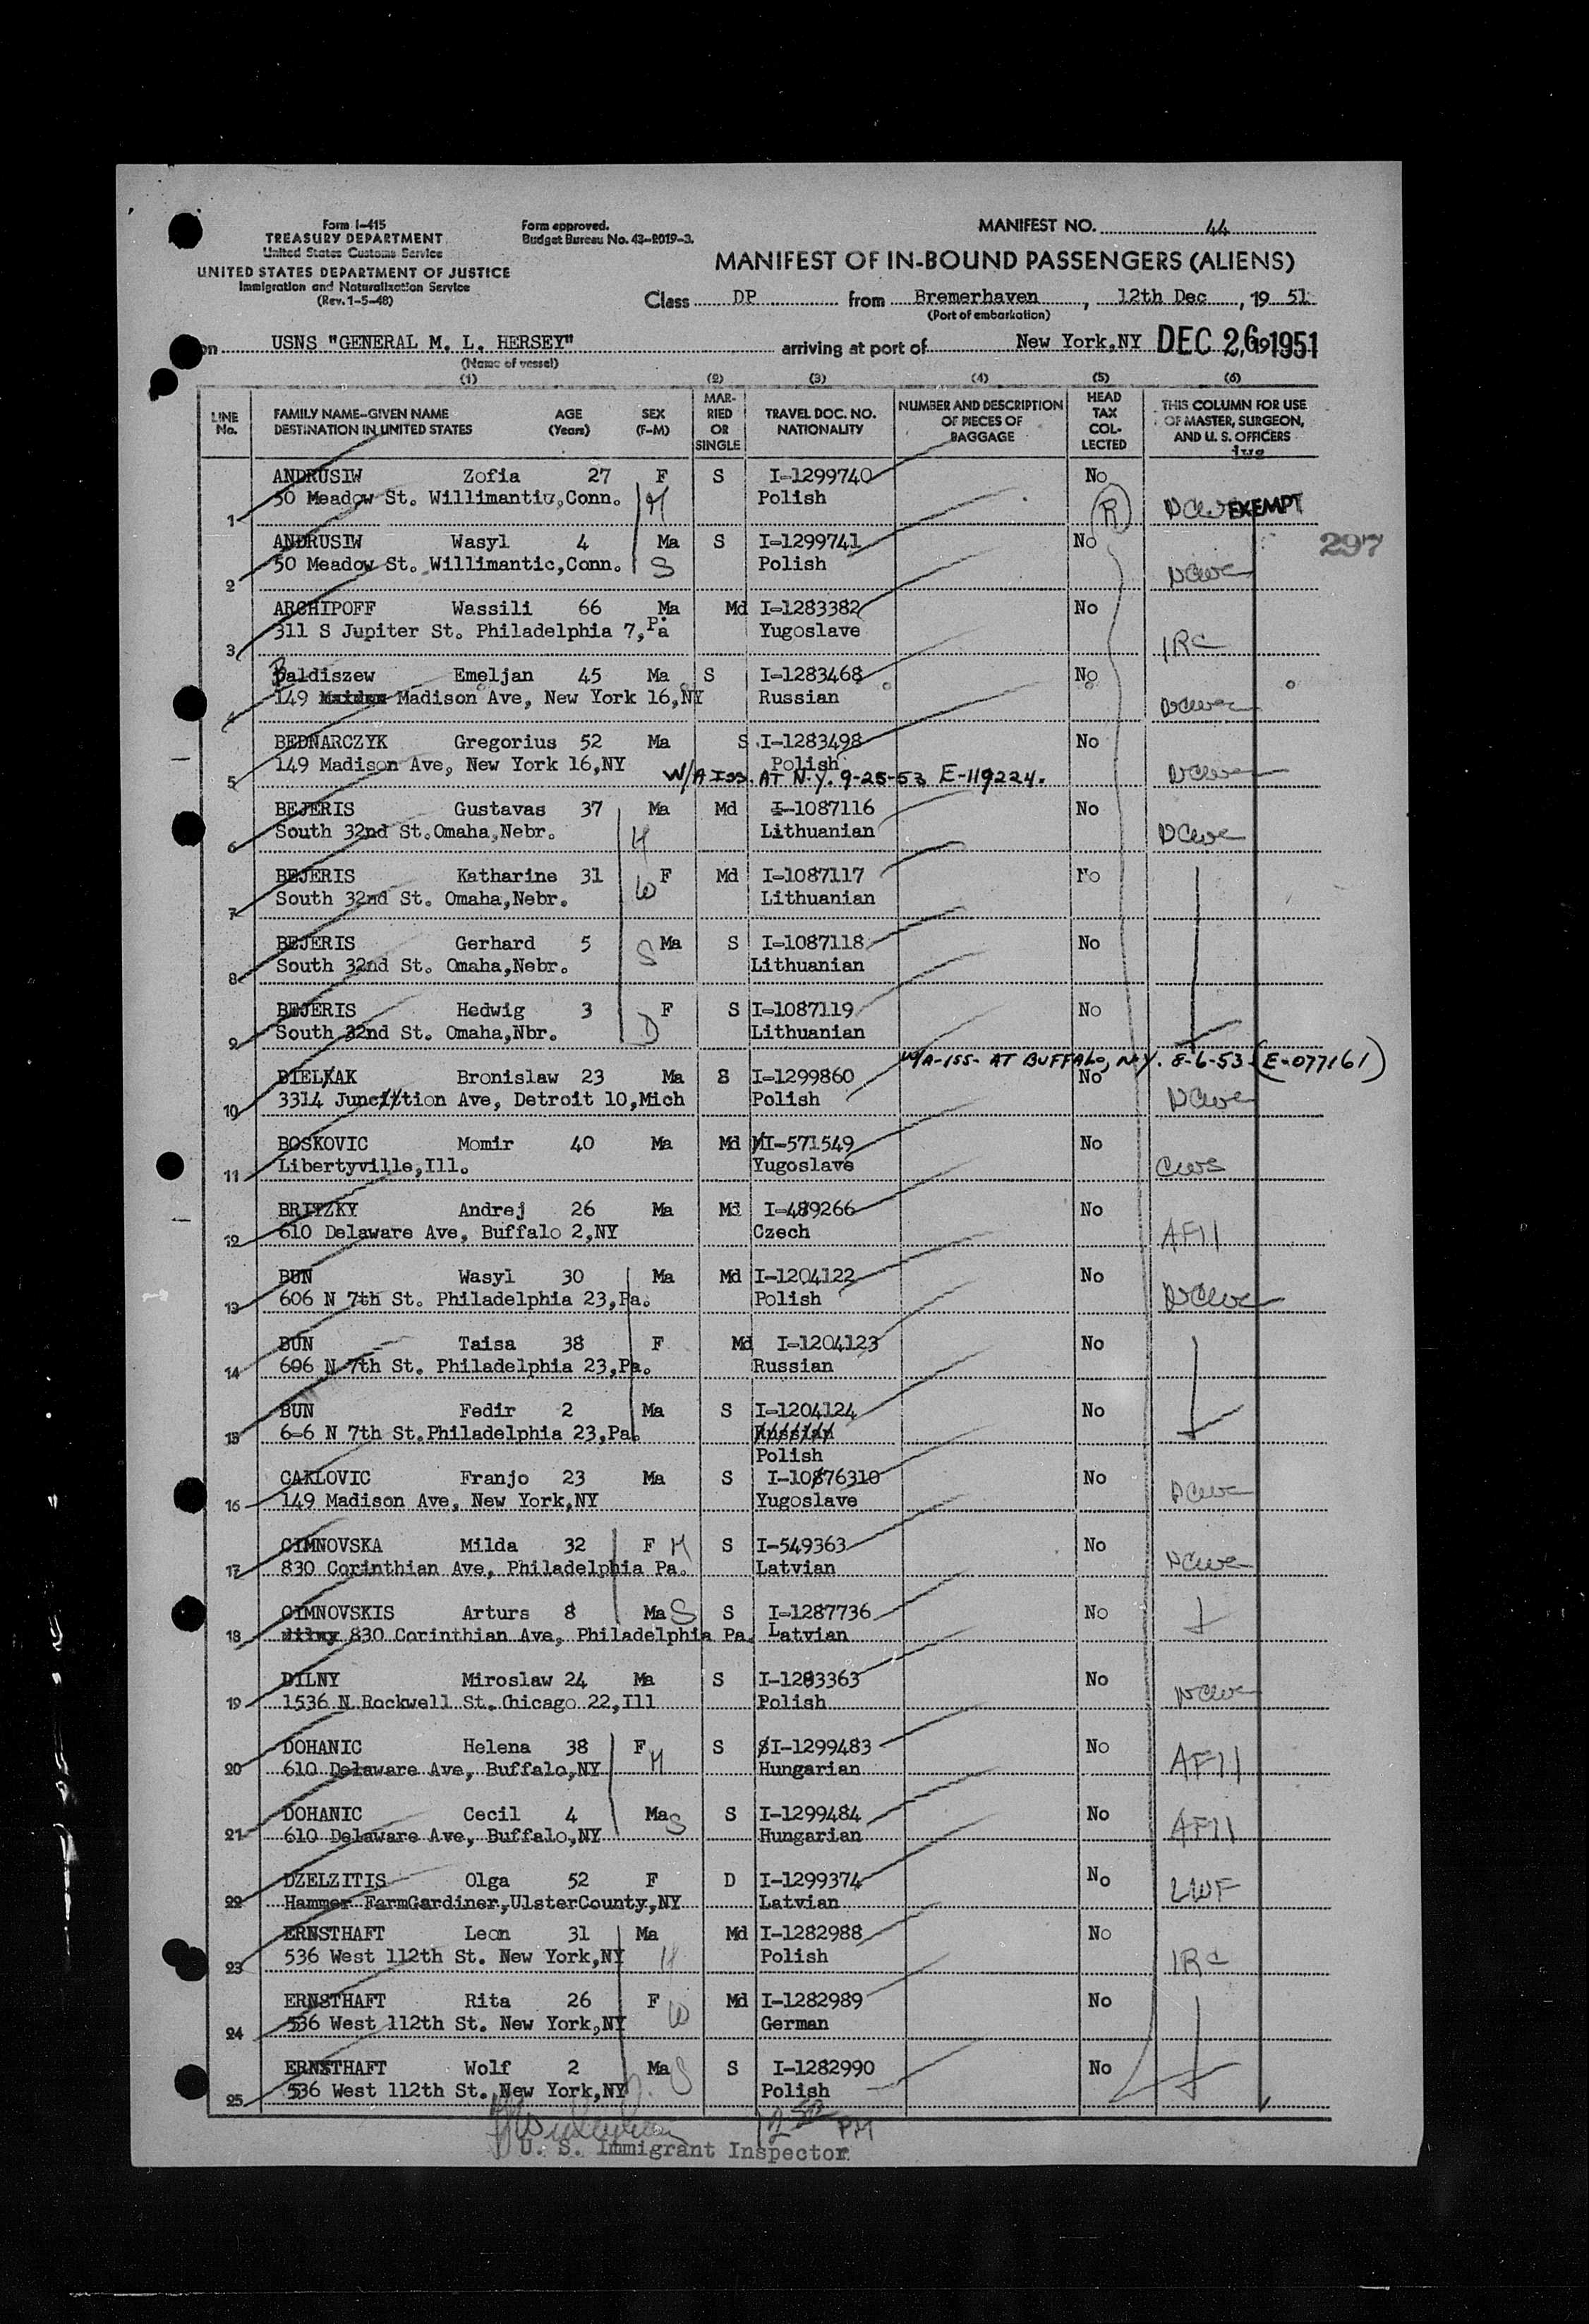 Form I-415
TREASURY DEPARTMENT
United States Customs Service
UNITED STATES DEPARTMENT OF JUSTICE
Immigration and Naturalization Service
(Rev. 1-5-48)
Form approved.
Budget Bureau No. 43-R019-3.
MANIFEST NO. 44
MANIFEST OF IN-BOUND PASSENGERS (ALIENS)
Class DP from Bremerhaven, 12th Dec, 19 51
(Port of embarkation)
on USNS "GENERAL M. L. HERSEY" arriving at port of New York,NY DEC 26 1951
(Name of vessel)
(1) (2) (3) (4) (5) (6)
LINE No. FAMILY NAME-GIVEN NAME DESTINATION IN UNITED STATES AGE (Years) SEX (F-M) MARRIED OR SINGLE TRAVEL DOC. NO. NATIONALITY NUMBER AND DESCRIPTION OF PIECES OF BAGGAGE HEAD TAX COLLECTED THIS COLUMN FOR USE OF MASTER, SURGEON, AND U. S. OFFICERS
ANDRUSIW Zofia 27 F S I-1299740 No
1 50 Meadow St. Willimantic,Conn. H Polish R NCWC EXEMPT
ANDRUSIW Wasyl 4 Ma S I-1299741 No 297
2 50 Meadow St. Willimantic,Conn. S Polish NCWC
ARCHIPOFF Wassili 66 Ma Md I-1283382 No
3 311 S Jupiter St. Philadelphia 7,Pa Yugoslave IRC
Baldiszew Emeljan 45 Ma S I-1283468 No
4 149 Madison Ave, New York 16,NY Russian NCWC
BEDNARCZYK Gregorius 52 Ma S I-1283498 No
5 149 Madison Ave, New York 16,NY Polish NCWC
W/A Iss. AT N.Y. 9-25-53 E-119224.
BEJERIS Gustavas 37 Ma Md I-1087116 No
6 South 32nd St.Omaha,Nebr. H Lithuanian NCWC
BEJERIS Katharine 31 F Md I-1087117 No
7 South 32nd St. Omaha,Nebr. W Lithuanian
BEJERIS Gerhard 5 Ma S I-1087118 No
8 South 32nd St. Omaha,Nebr. S Lithuanian
BEJERIS Hedwig 3 F S I-1087119 No
9 South 32nd St. Omaha,Nbr. D Lithuanian
W/A-ISS- AT BUFFALO, N.Y. 8-6-53 (E-077161)
BIELAK Bronislaw 23 Ma S I-1299860 No
10 3314 Junction Ave, Detroit 10,Mich Polish NCWC
BOSKOVIC Momir 40 Ma Md I-571549 No
11 Libertyville,Ill. Yugoslave CWS
BRITZKY Andrej 26 Ma Md I-489266 No
12 610 Delaware Ave, Buffalo 2,NY Czech AFII
BUN Wasyl 30 Ma Md I-1204122 No
13 606 N 7th St. Philadelphia 23,Pa. Polish NCWC
BUN Taisa 38 F Md I-1204123 No
14 606 N 7th St. Philadelphia 23,Pa. Russian
BUN Fedir 2 Ma S I-1204124 No
15 6-6 N 7th St.Philadelphia 23,Pa. Russian
Polish
CAKLOVIC Franjo 23 Ma S I-10876310 No
16 149 Madison Ave, New York,NY Yugoslave NCWC
CIMNOVSKA Milda 32 F H S I-549363 No
17 830 Corinthian Ave, Philadelphia Pa. Latvian NCWC
CIMNOVSKIS Arturs 8 Ma S S I-1287736 No
18 830 Corinthian Ave, Philadelphia Pa. Latvian
DILNY Miroslaw 24 Ma S I-1283363 No
19 1536 N Rockwell St.Chicago 22,Ill Polish NCWC
DOHANIC Helena 38 F S I-1299483 No
20 610 Delaware Ave, Buffalo,NY H Hungarian AFII
DOHANIC Cecil 4 Ma S S I-1299484 No
21 610 Delaware Ave, Buffalo,NY Hungarian AFII
DZELZITIS Olga 52 F D I-1299374 No
22 Hammer FarmGardiner,UlsterCounty,NY Latvian LWF
ERNSTHAFT Leon 31 Ma Md I-1282988 No
23 536 West 112th St. New York,NY H Polish IRC
ERNSTHAFT Rita 26 F Md I-1282989 No
24 536 West 112th St. New York,NY W German
ERNSTHAFT Wolf 2 Ma S S I-1282990 No
25 536 West 112th St. New York,NY Polish
12 50 PM
U. S. Immigrant Inspector